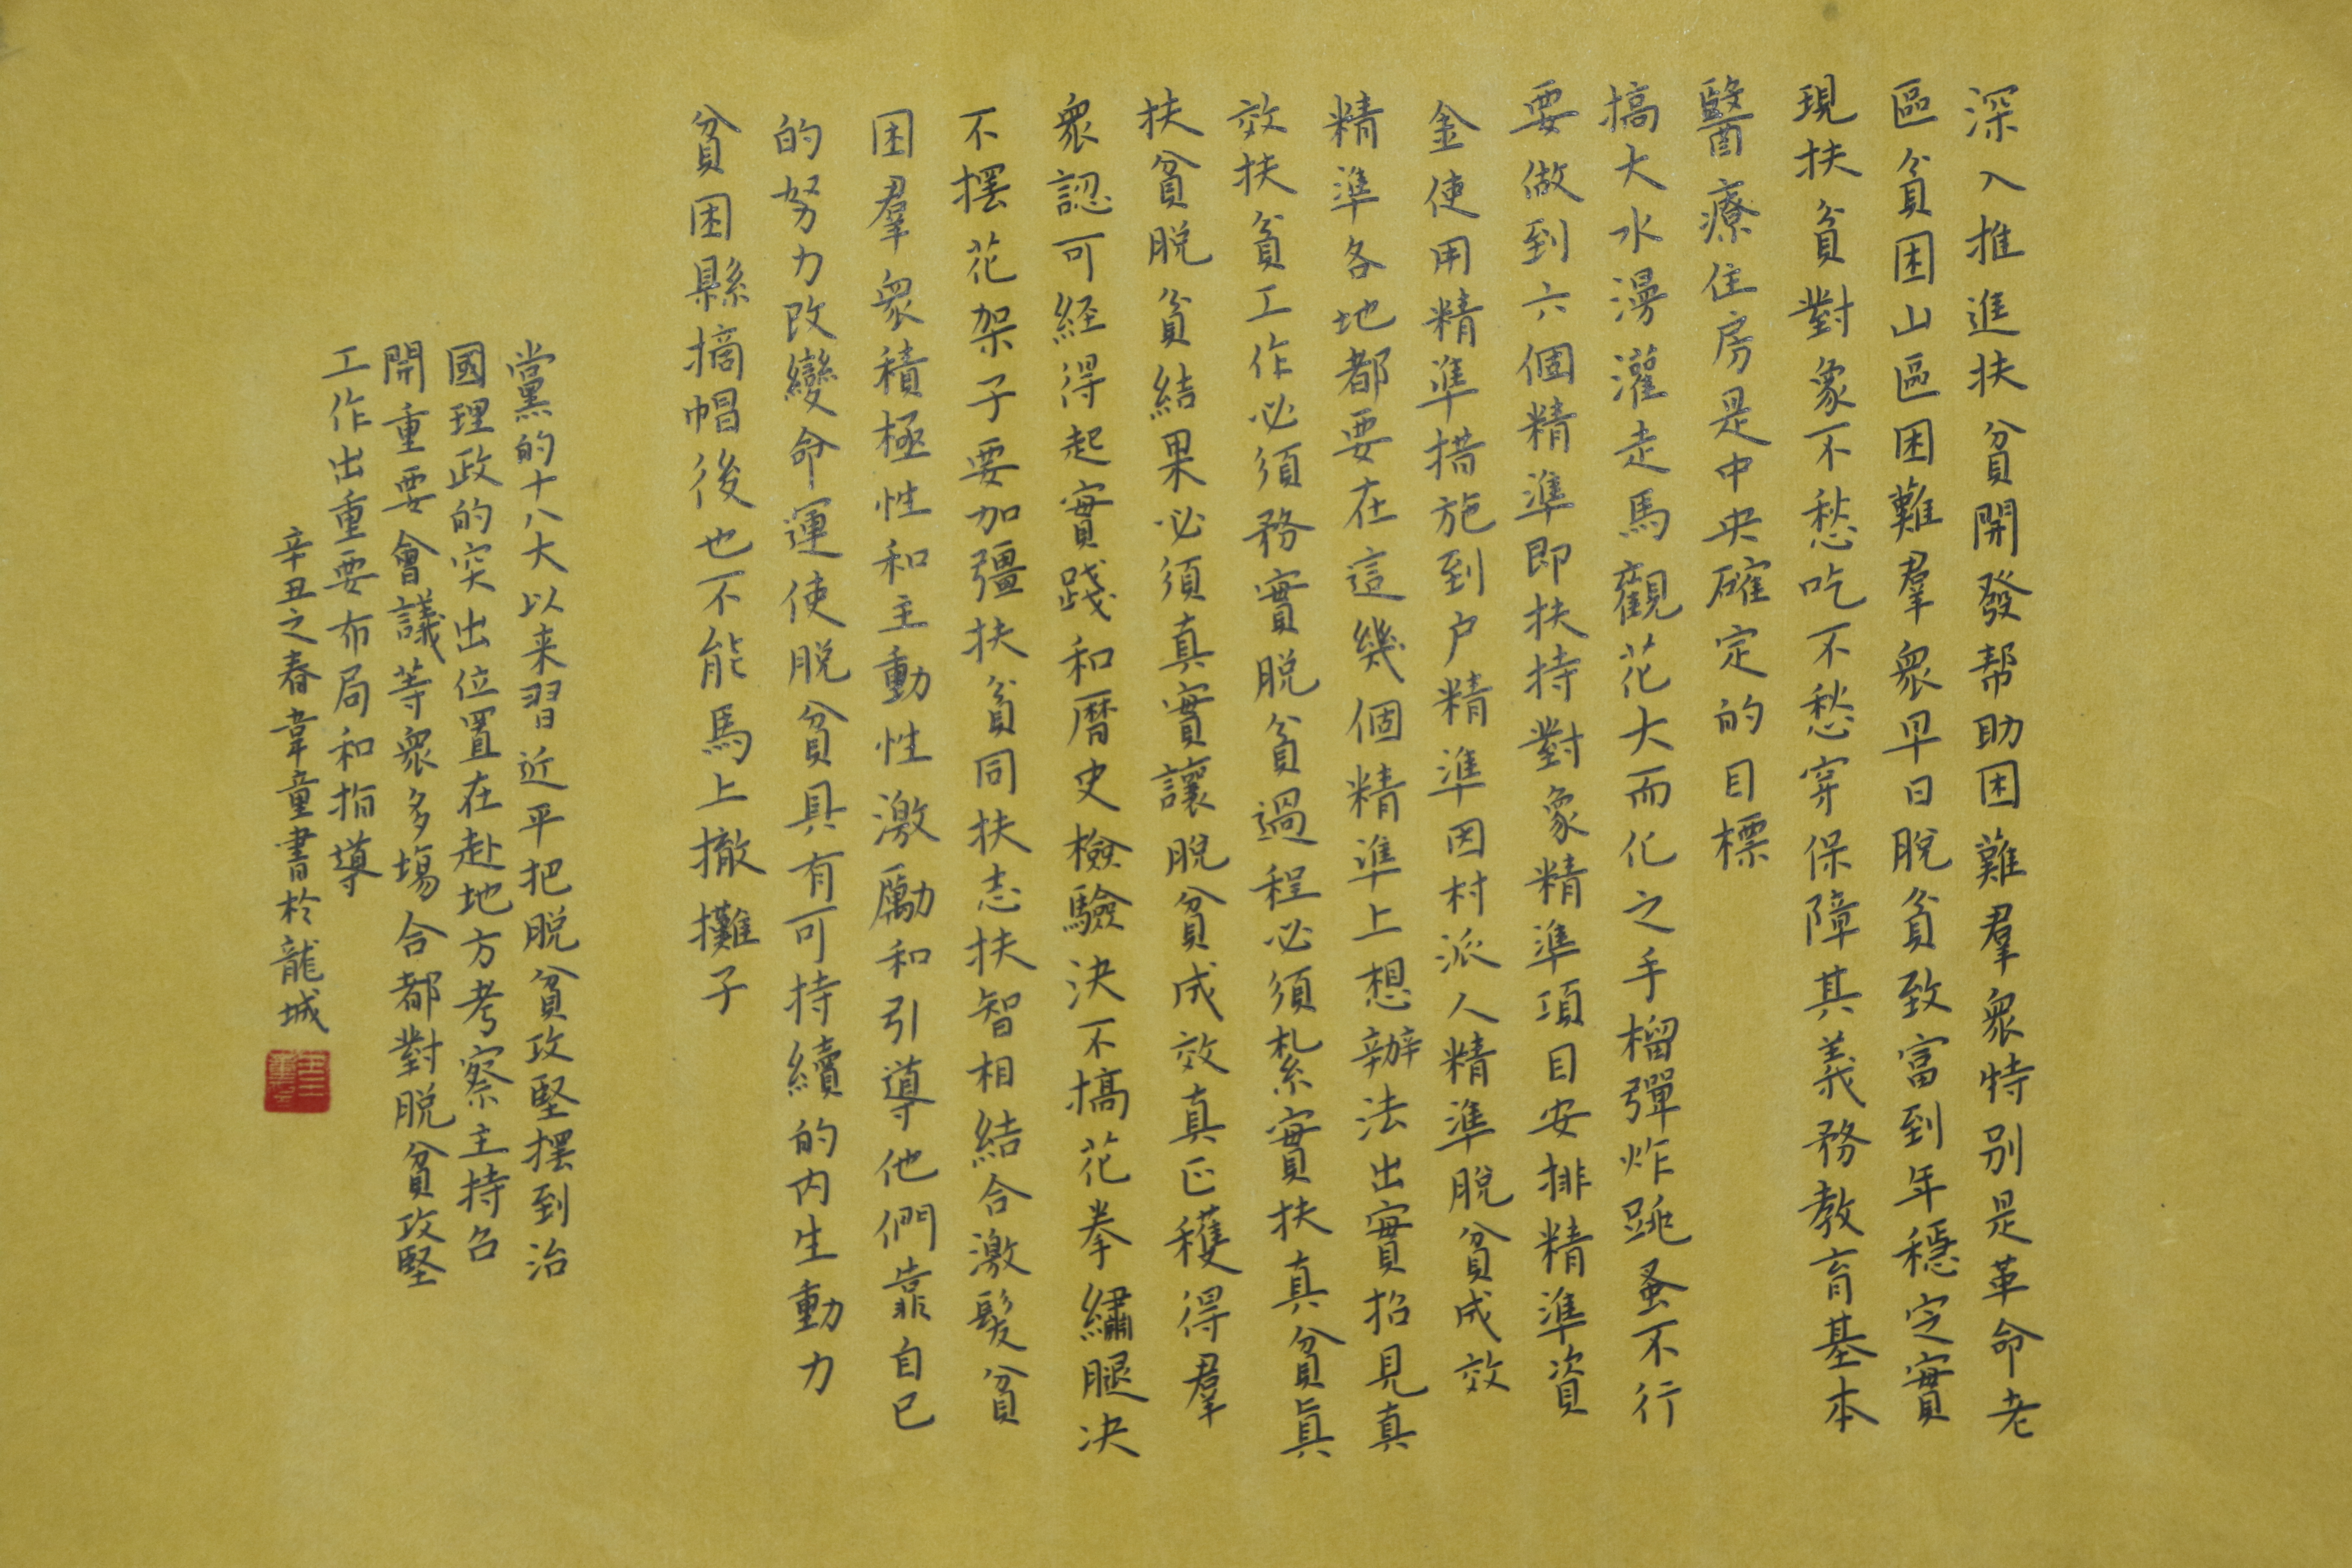 深入推進扶貧開發帮助困難羣衆特别是革命老
區貧困山區困難羣衆早日脱貧致富到年穩定實
現扶貧對象不愁吃不愁穿保障其義務教育基本
醫療住房是中央確定的目標
搞大水漫灌走馬觀花大而化之手榴彈炸跳蚤不行
要做到六個精準即扶持對象精準項目安排精準資
金使用精準措施到户精準因村派人精準脱貧成效
精準各地都要在這幾個精準上想辦法出實招見真
效扶貧工作必須務實脱貧過程必須紮實扶真貧真
扶貧脱貧結果必須真實讓脱貧成效真正穫得羣
衆認可経得起實踐和曆史檢驗決不搞花拳繡腿决
不摆花架子要加彊扶貧同扶志扶智相結合激髮貧
困羣衆積極性和主動性激勵和引導他們靠自己
的努力改變命運使脱貧具有可持續的内生動力
貧困縣摘帽後也不能馬上撤攤子
黨的十八大以来習近平把脱貧攻堅摆到治
國理政的突出位置在赴地方考察主持召
開重要會議等衆多場合都對脱貧攻堅
工作出重要布局和指導
辛丑之春韋童書於龍城